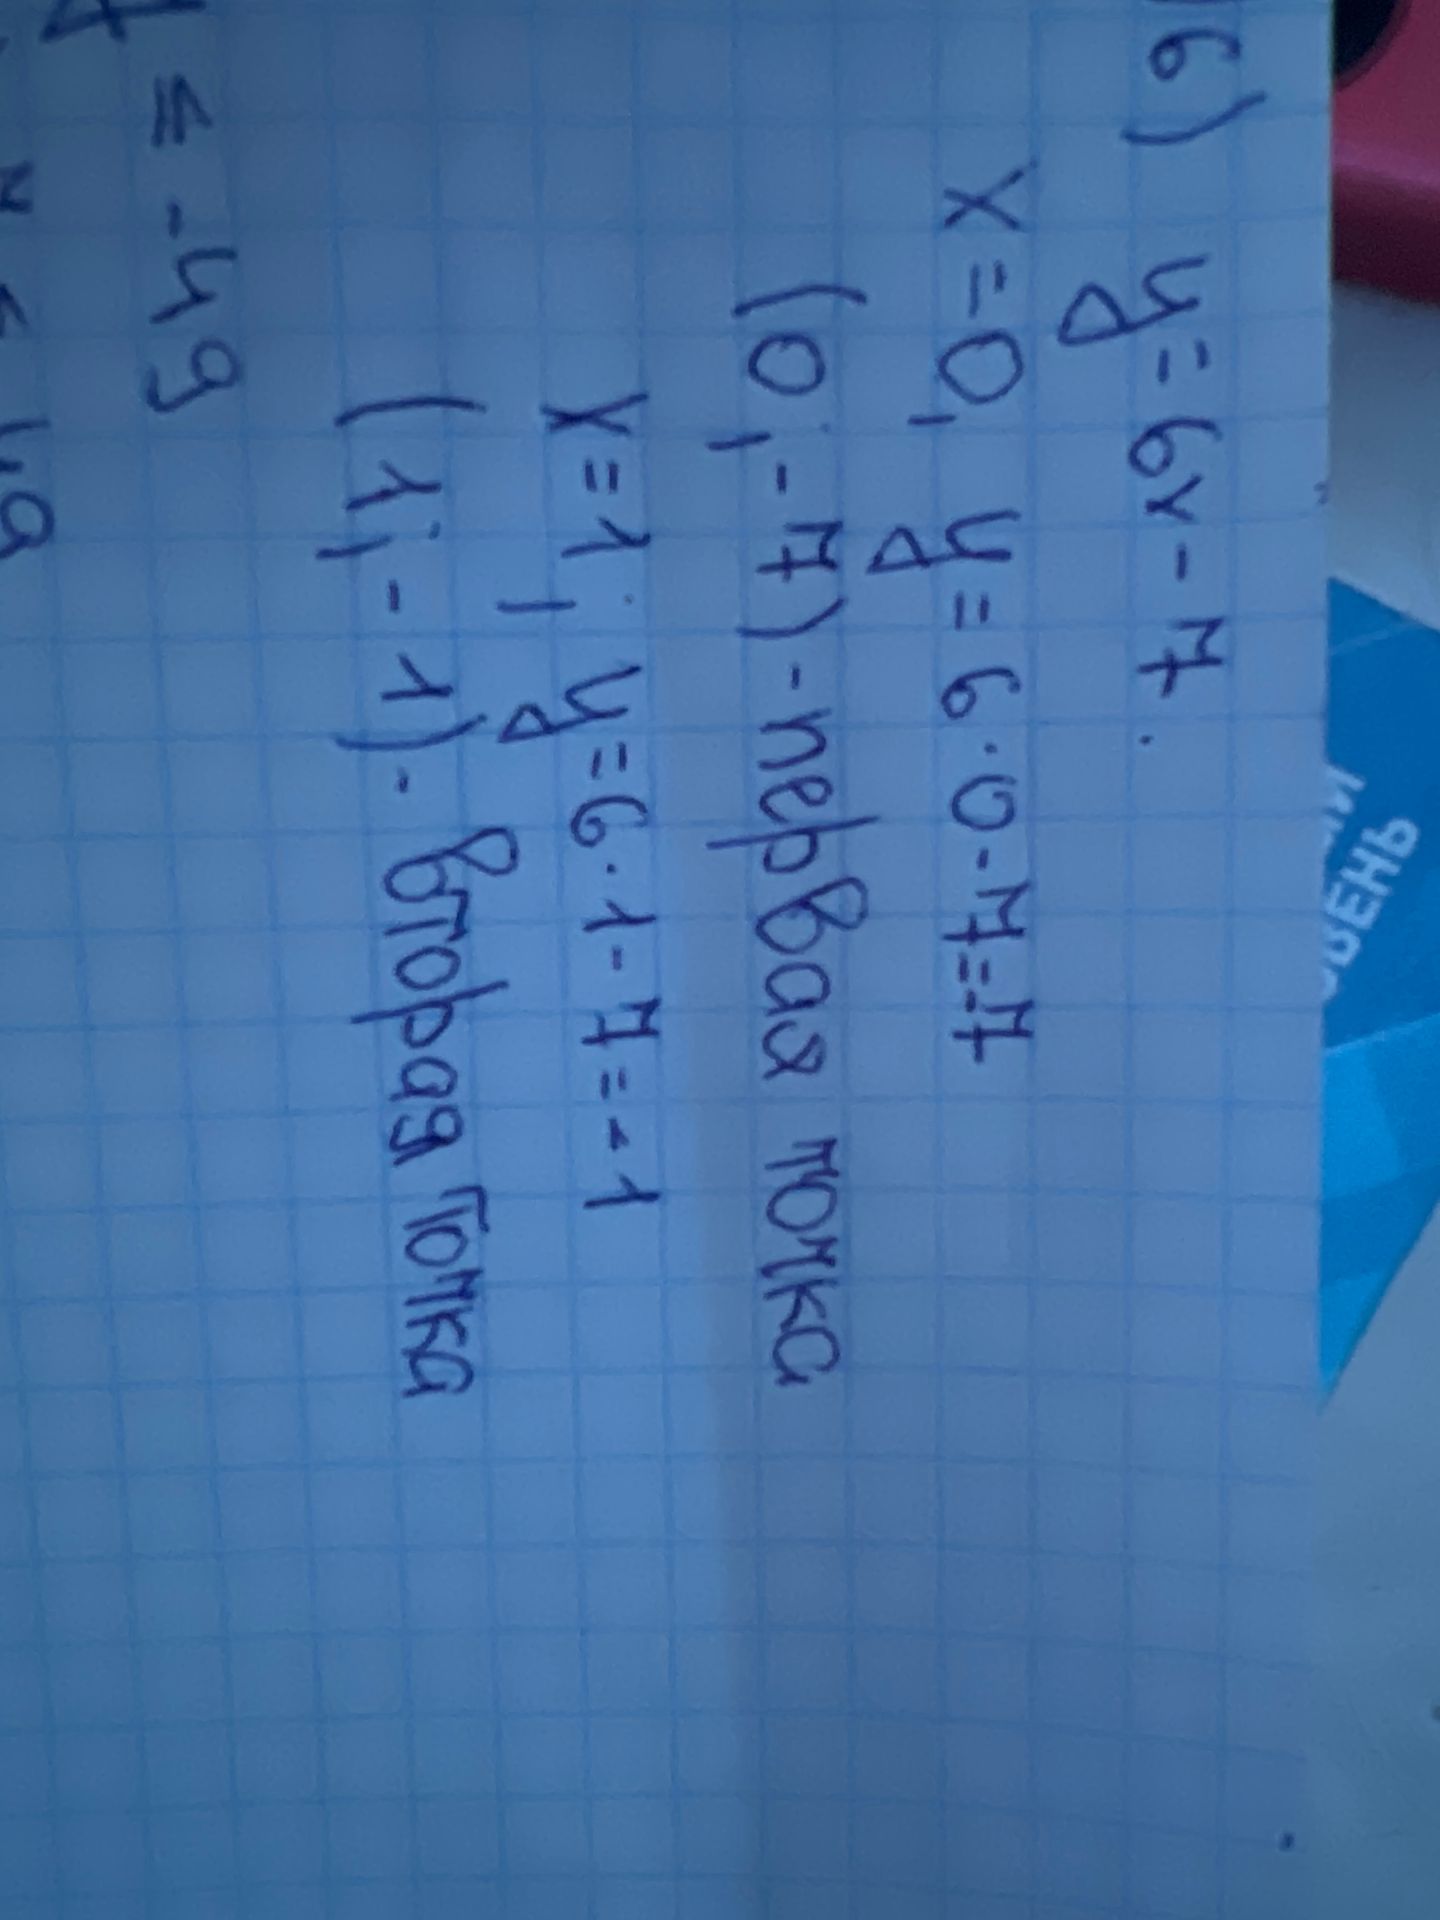 6) y = 6x - 7.
x = 0, y = 6 · 0 - 7 = -7
(0, -7) - первая точка
x = 1; y = 6 · 1 - 7 = -1
(1; -1) - вторая точка
= -49
ВЕНЬ